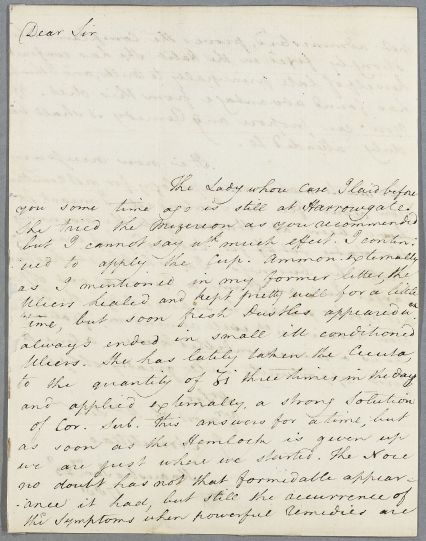 Dear Sir,
The Lady whose Case I laid before
you some time ago is still at Harrowgate.
She tried the Mezereon as you recommended
but I cannot say wth much effect. I contin-
ued to apply the Cup. Ammon: externally
as I mentioned in my former letter, the
Ulcers healed and kept pretty well for a little
time, but soon fresh Pustles appeared
always ended in small ill conditioned
Ulcers. She has lately taken the Cicuta,
to the quantity of three times in the day
and applied externally, a strong Solution
of Cor. Sub. this answers for a time, but
as soon as the Hemlock is given up
we are just where we started. The Nose
no doubt has not that formidable appear-
ance it had, but still the recurrence of
the Symptoms when powerful remedies are